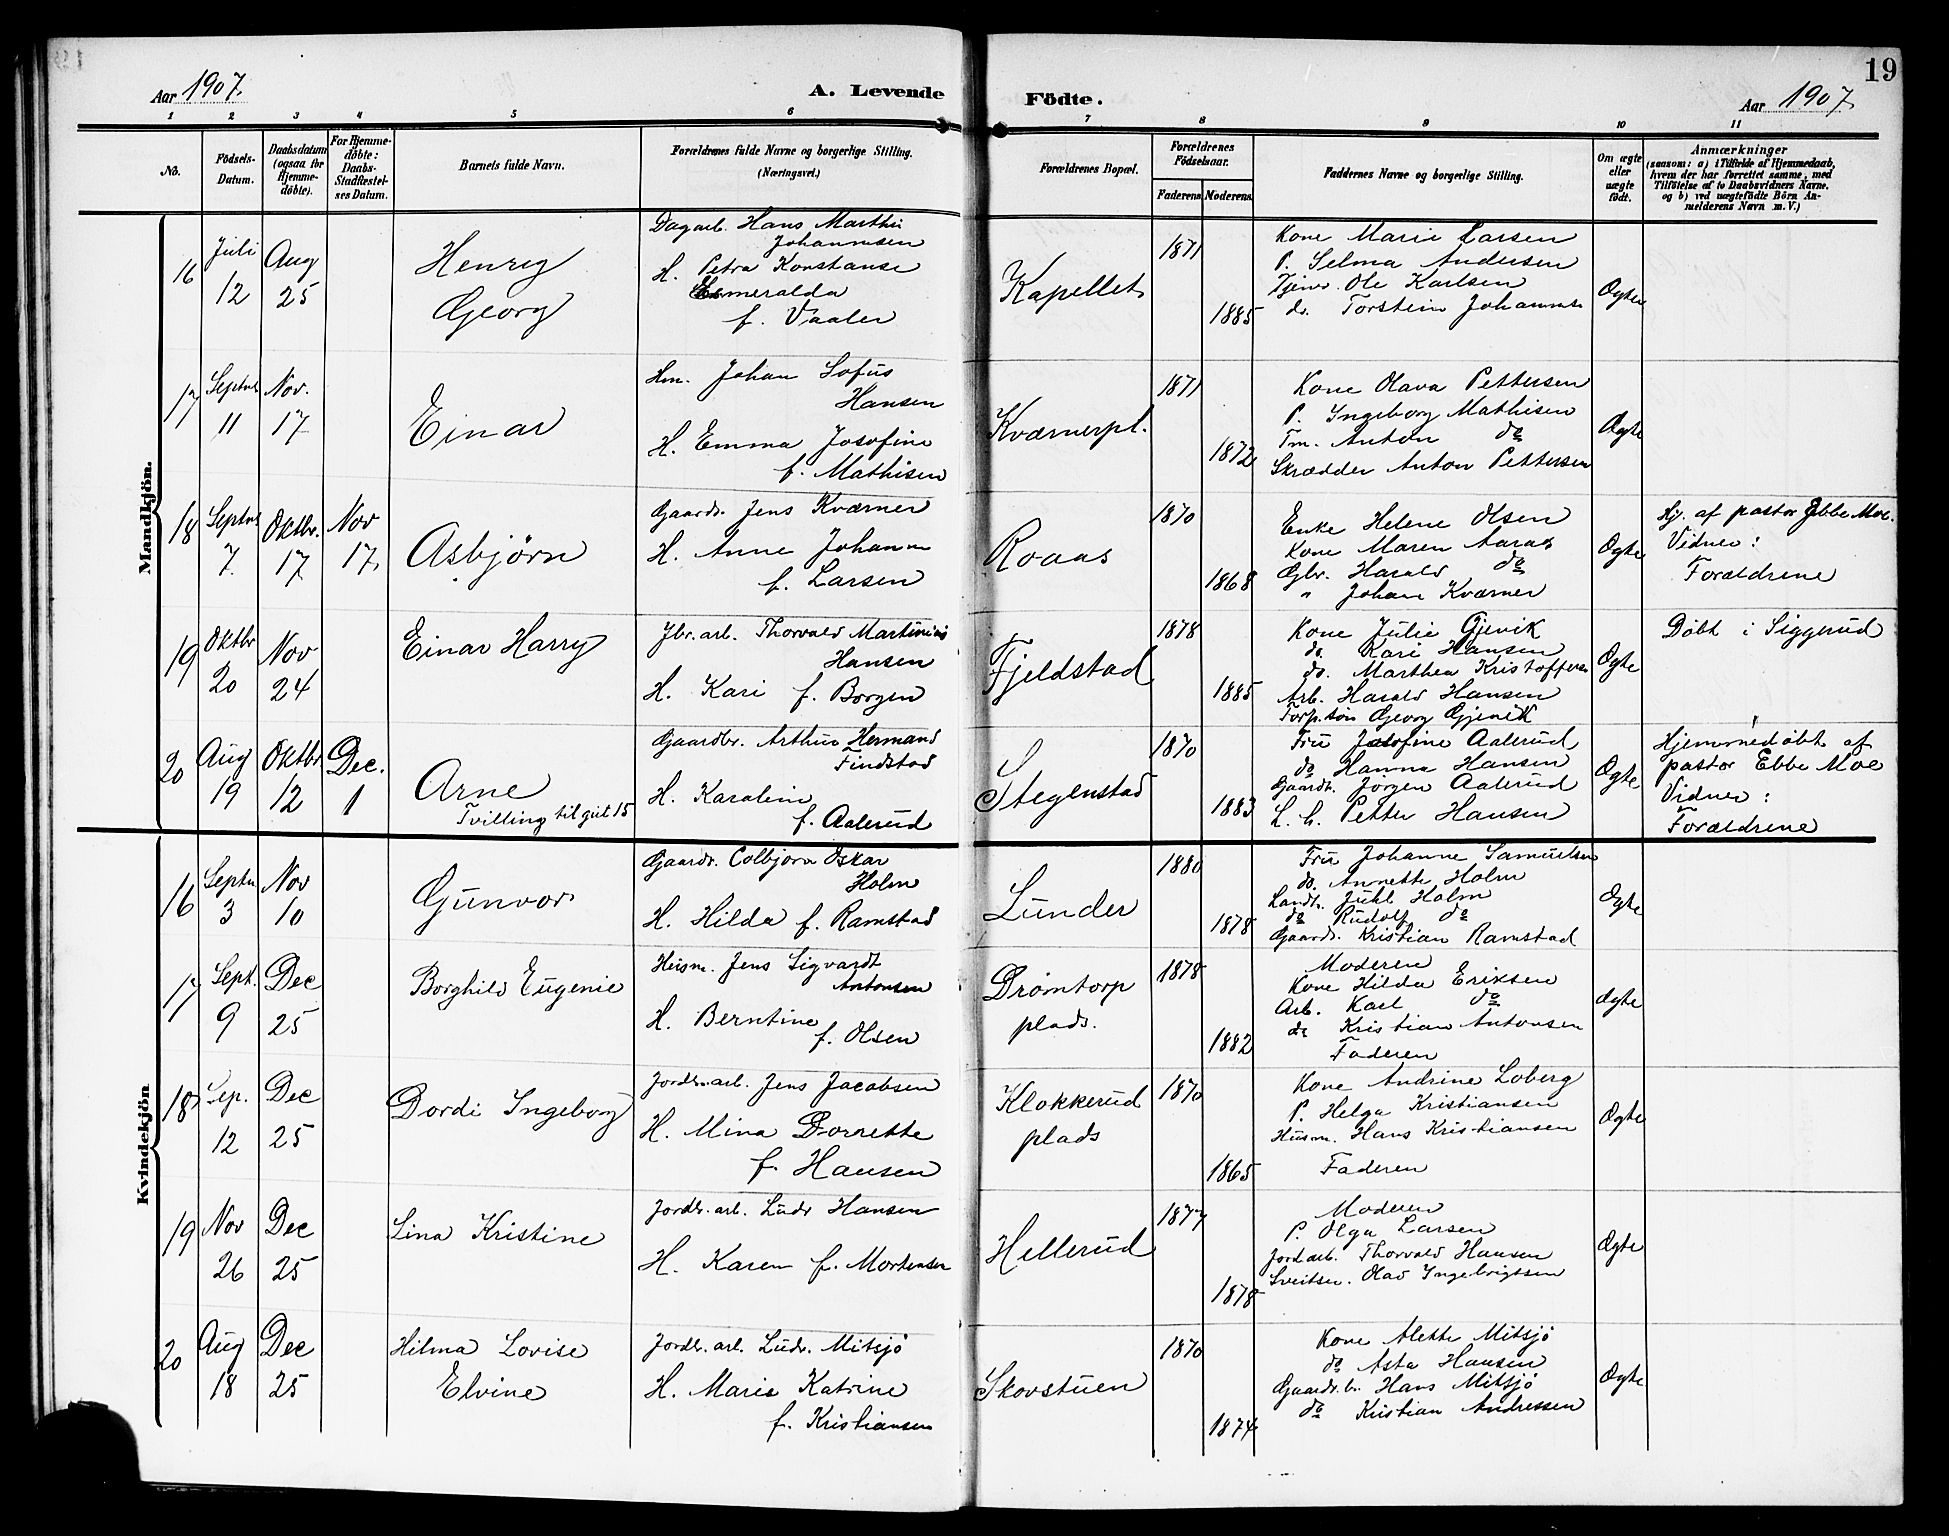 Aar 1907.
A. Levende
Födte.
Aar 1907.
19
1 2 3 4 5 6 7 8 9 10 11
No.
Födsels-
Datum.
Daabsdatum
(ogsaa for
Hjemme-
döbte).
For Hjemme-
döbte:
Daabs-
Stadfæstel-
ses Datum.
Barnets fulde Navn.
Forældrenes fulde Navne og borgerlige Stilling.
(Næringsvei.)
Forældrenes Bopæl.
Forældrenes
Födselsaar.
Faderens
Moderens
Faddernes Navne og borgerlige Stilling.
Om ægte
eller
uægte
födt.
Anmærkninger
(saasom: a) i Tilfælde af Hjemmedaab,
hvem der har forrettet samme, med
Tilföielse af to Daabsvidners Navne,
og b) ved uægtefödte Börn An-
melderens Navn m. V.)
Mandkjön.
16
Juli
12
Aug
25
Henry
Georg
Dagarb. Hans Marthin
Johannsen
H. Petra Konstanse
Esmeralda
f. Vaaler
Kapellet
1871
1885
Kone Marie Larsen
P. Selma Andersen
Tjener. Ole Karlsen
do. Torstein Johannsen
Ægte
17
Septbr
11
Nov.
17
Einar
Hm. Johan Sofus
Hansen
H. Emma Josofine
f. Mathisen
Kværnerpl.
1871
1872
Kone Olava Pettersen
P. Ingeborg Mathisen
Tm. Anton do
Skrædder Anton Pettersen
Ægte
18
Septbr
7
Oktbr.
17
Nov
17
Asbjørn
Gaardb. Jens Kværner
H. Anne Johanne
f. Larsen
Roaas
1870
1868
Enke Helene Olsen
Kone Maren Aaraas
Gbr. Harald do
" Johan Kværner
Ægte
Hj. af pastor Ebbe Moe.
Vidner:
Forældrene
19
Oktbr
20
Nov
24
Einar Harry
Jbr. arb. Thorvald Martinius
Hansen
H. Kari f. Borgen
Fjeldstad
1878
1885
Kone Julie Gjevik
do. Kari Hansen
do. Marthea Kristoffersen
Arb. Harald Hansen
Forp. søn Georg Gjevik
Ægte
Døbt i Siggerud
20
Aug
19
Oktbr
12
Dec.
1
Arne
Tvilling til gut 15
Gaardbr. Arthur Hermand
Findstad
H. Karoline
f. Aalerud
Stegenstad
1870
1883
Fru Josofine Aalerud
do Hanna Hansen
Gaardb. Jørgen Aalerud
L. h. Petter Hansen
Ægte
Hjemmedøbt af
pastor Ebbe Moe
Vidner:
Forældrene
Kvindekjön
16
Septbr
3
Nov
10
Gunvor
Gaardb. Colbjørn Oskar
Holm
H. Hilda f. Ramstad
Lunder
1880
1878
Fru Johanne Samuelsen
do. Annette Holm
Landh. Juhl Holm
do Rudolf do
Gaardb. Kristian Ramstad
Ægte
17
Sept.
9
Dec
25
Borghild Eugenie
Husm. Jens Sigvardt
Antonsen
H. Berntine
f. Olsen
Drømtorp
plads.
1878
1882
Moderen
Kone Hilda Eriksen
Arb. Karl do
do Kristian Antonsen
Faderen
Ægte
18
Sep.
12
Dec
25
Dordi Ingeborg
Jordbr. arb. Jens Jacobsen
H. Mina Dorrette
f. Hansen
Klokkerud
plads
1870
1865
Kone Andrine Loberg
P. Helga Kristiansen
Husm. Hans Kristiansen
Faderen
Ægte
19
Nov
26
Dec
25
Lina Kristine
Jordbr. arb. Ludv Hansen
H. Karen f. Mortensen
Hellerud
1877
1878
Moderen
P. Olga Larsen
Jordarb. Thorvald Hansen
Sveitser. Olav Ingebrigtsen
Ægte
20
Aug
18
Dec
25
Hilma Lovise
Elvine
Jordbr. arb. Ludv. Mitsjø
H. Marie Katrine
f. Kristiansen
Skovstuen
1870
1874
Kone Alette Mitsjø
do Asta Hansen
Gaardb. Hans Mitsjø
do Kristian Andressen
Ægte